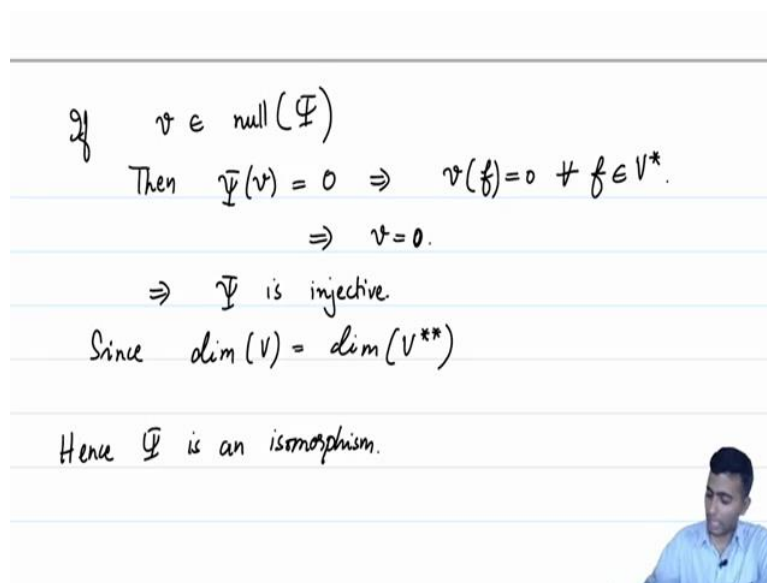 If v ∈ null(Ψ)
Then Ψ(v) = 0 ⇒ v(f)=0 ∀ f ∈ V*.
⇒ v=0.
⇒ Ψ is injective.
Since dim(V) = dim(V**)
Hence Ψ is an isomorphism.